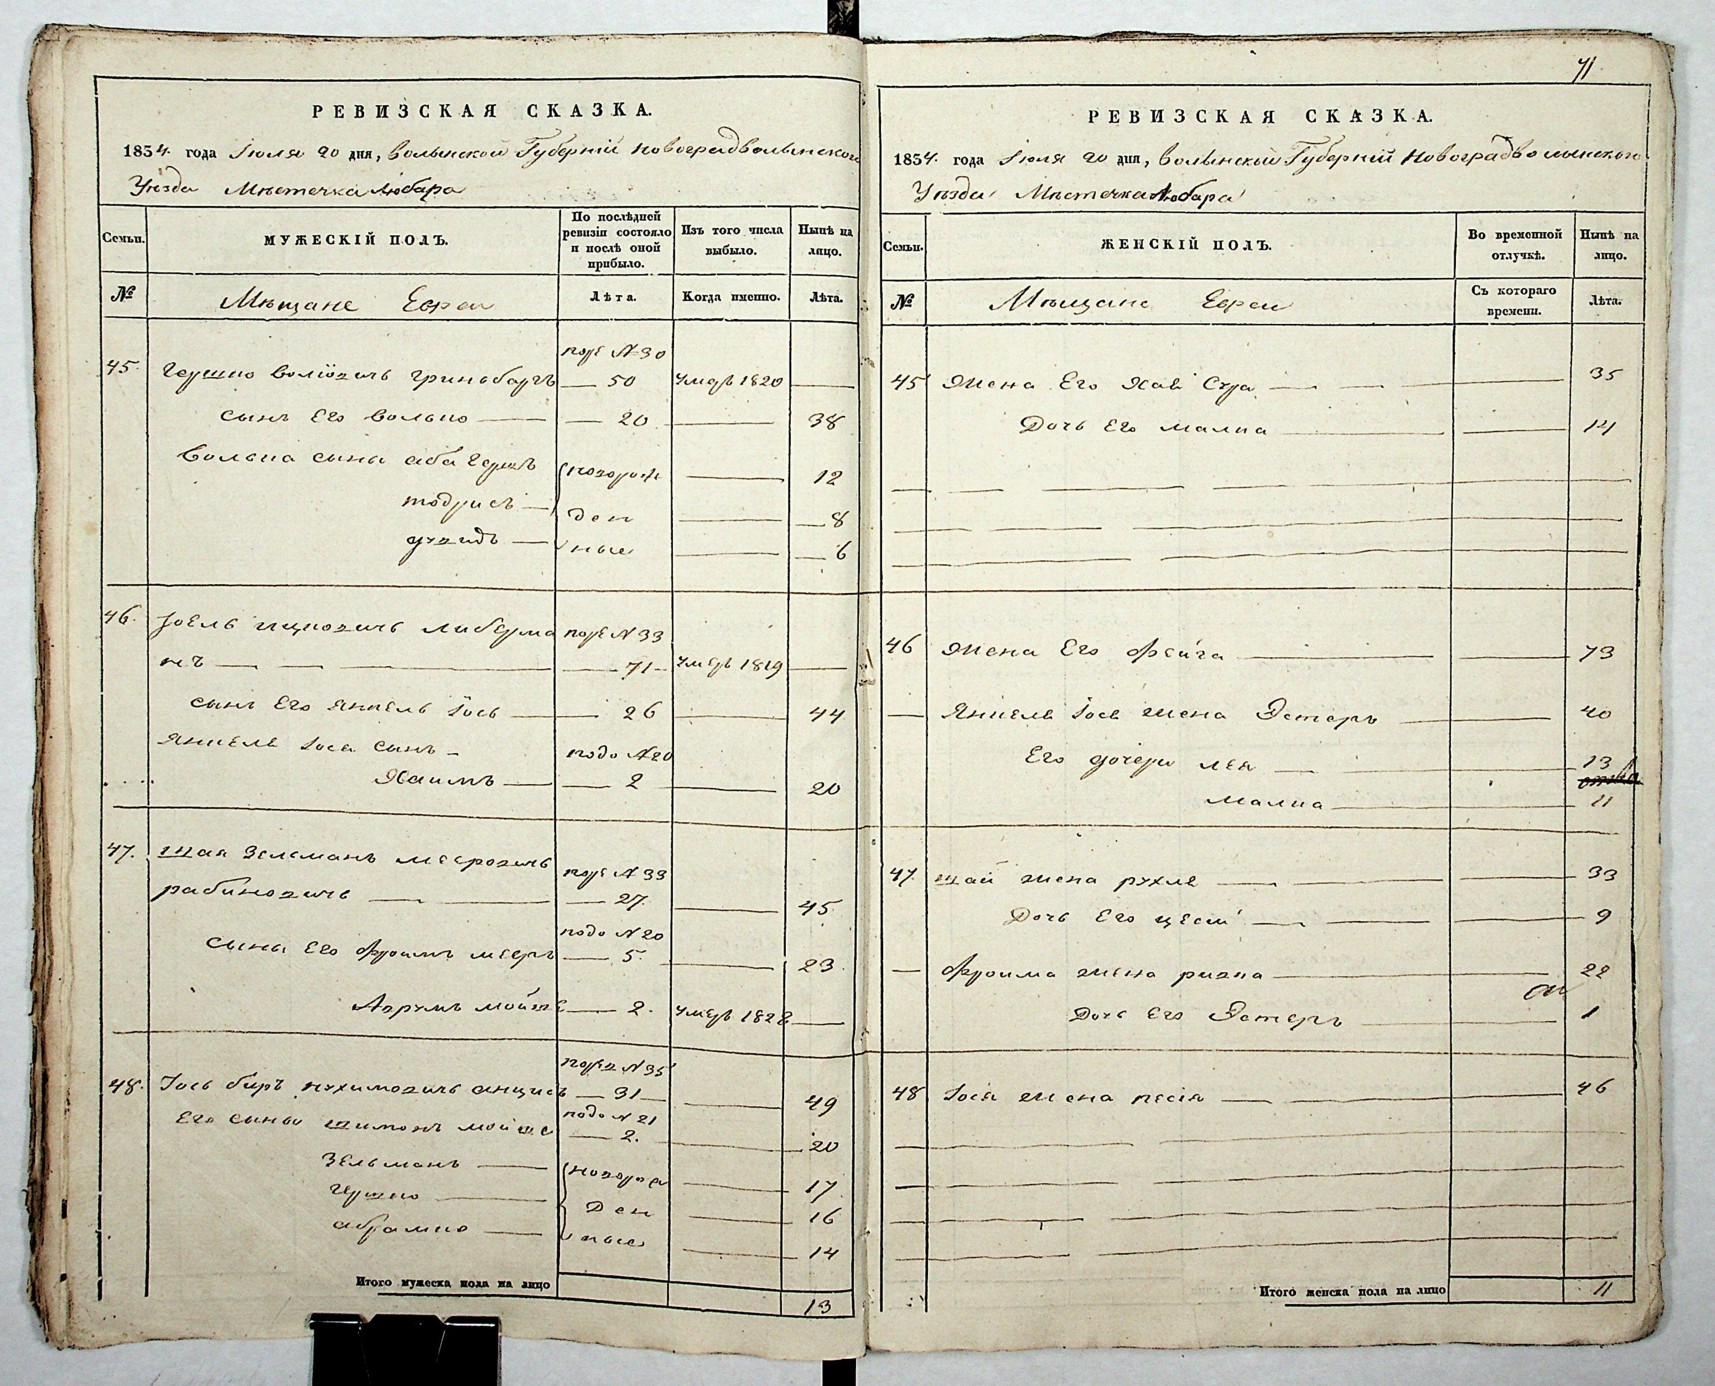 РЕВИЗСКАЯ СКАЗКА.
1834 года Іюля 20 дня, Волынской Губерніи Новоградволынского
Уѣзда Мѣстечка Любара
Семьи.
МУЖЕСКІЙ ПОЛЪ.
По послѣдней ревизіи состояло и послѣ оной прибыло.
Изъ того числа выбыло.
Нынѣ на лицо.
№
Мѣщане Евреи
Лѣта.
Когда именно.
Лѣта.
№ 30
45. Гершко Гриньбаргъ 50 умеръ 1820
сынъ Его Волько 20 38
Волька сыны Аба Гершъ новорож 12
ден 8
ные 6
46. Іоель Ицковичъ Либерма № 33
нъ 71 умеръ 1819
сынъ Его Янкель Іось 26 44
Янкеля Іося сынъ № 20
Хаимъ 2 20
47. Шая Зельманъ Мееровичъ № 33
Рабиновичъ 27 45
№ 20
сыны Его Фроимъ Мееръ 5. 23
Мойше 2. умеръ 1828
№ 35
48. Іось Беръ Нухимовичъ 31 49
Его сыны Шимонъ Мойше № 21
2. 20
Зельманъ новоро 17
Гершко ден 16
Абрамко ные 14
Итого мужеска пола на лицо
13
71
РЕВИЗСКАЯ СКАЗКА.
1834 года Іюля 20 дня, Волынской Губерніи Новоградволынского
Уѣзда Мѣстечка Любара
Семьи.
ЖЕНСКІЙ ПОЛЪ.
Во временной отлучкѣ.
Нынѣ на лицо.
№
Мѣщане Евреи
Съ котораго времени.
Лѣта.
45 Жена Его Хая Сура 35
Дочь Его Малка 14
46 Жена Его Фейга 73
Янкеля Іося жена Эстеръ 40
Его дочери Лея 13
Малка 11
47 Шаи жена Рухля 33
Дочь Его 9
Фроима жена Ривка 22
Дочь Его Эстеръ 1
48 Іося жена Песія 46
Итого женска пола на лицо
11